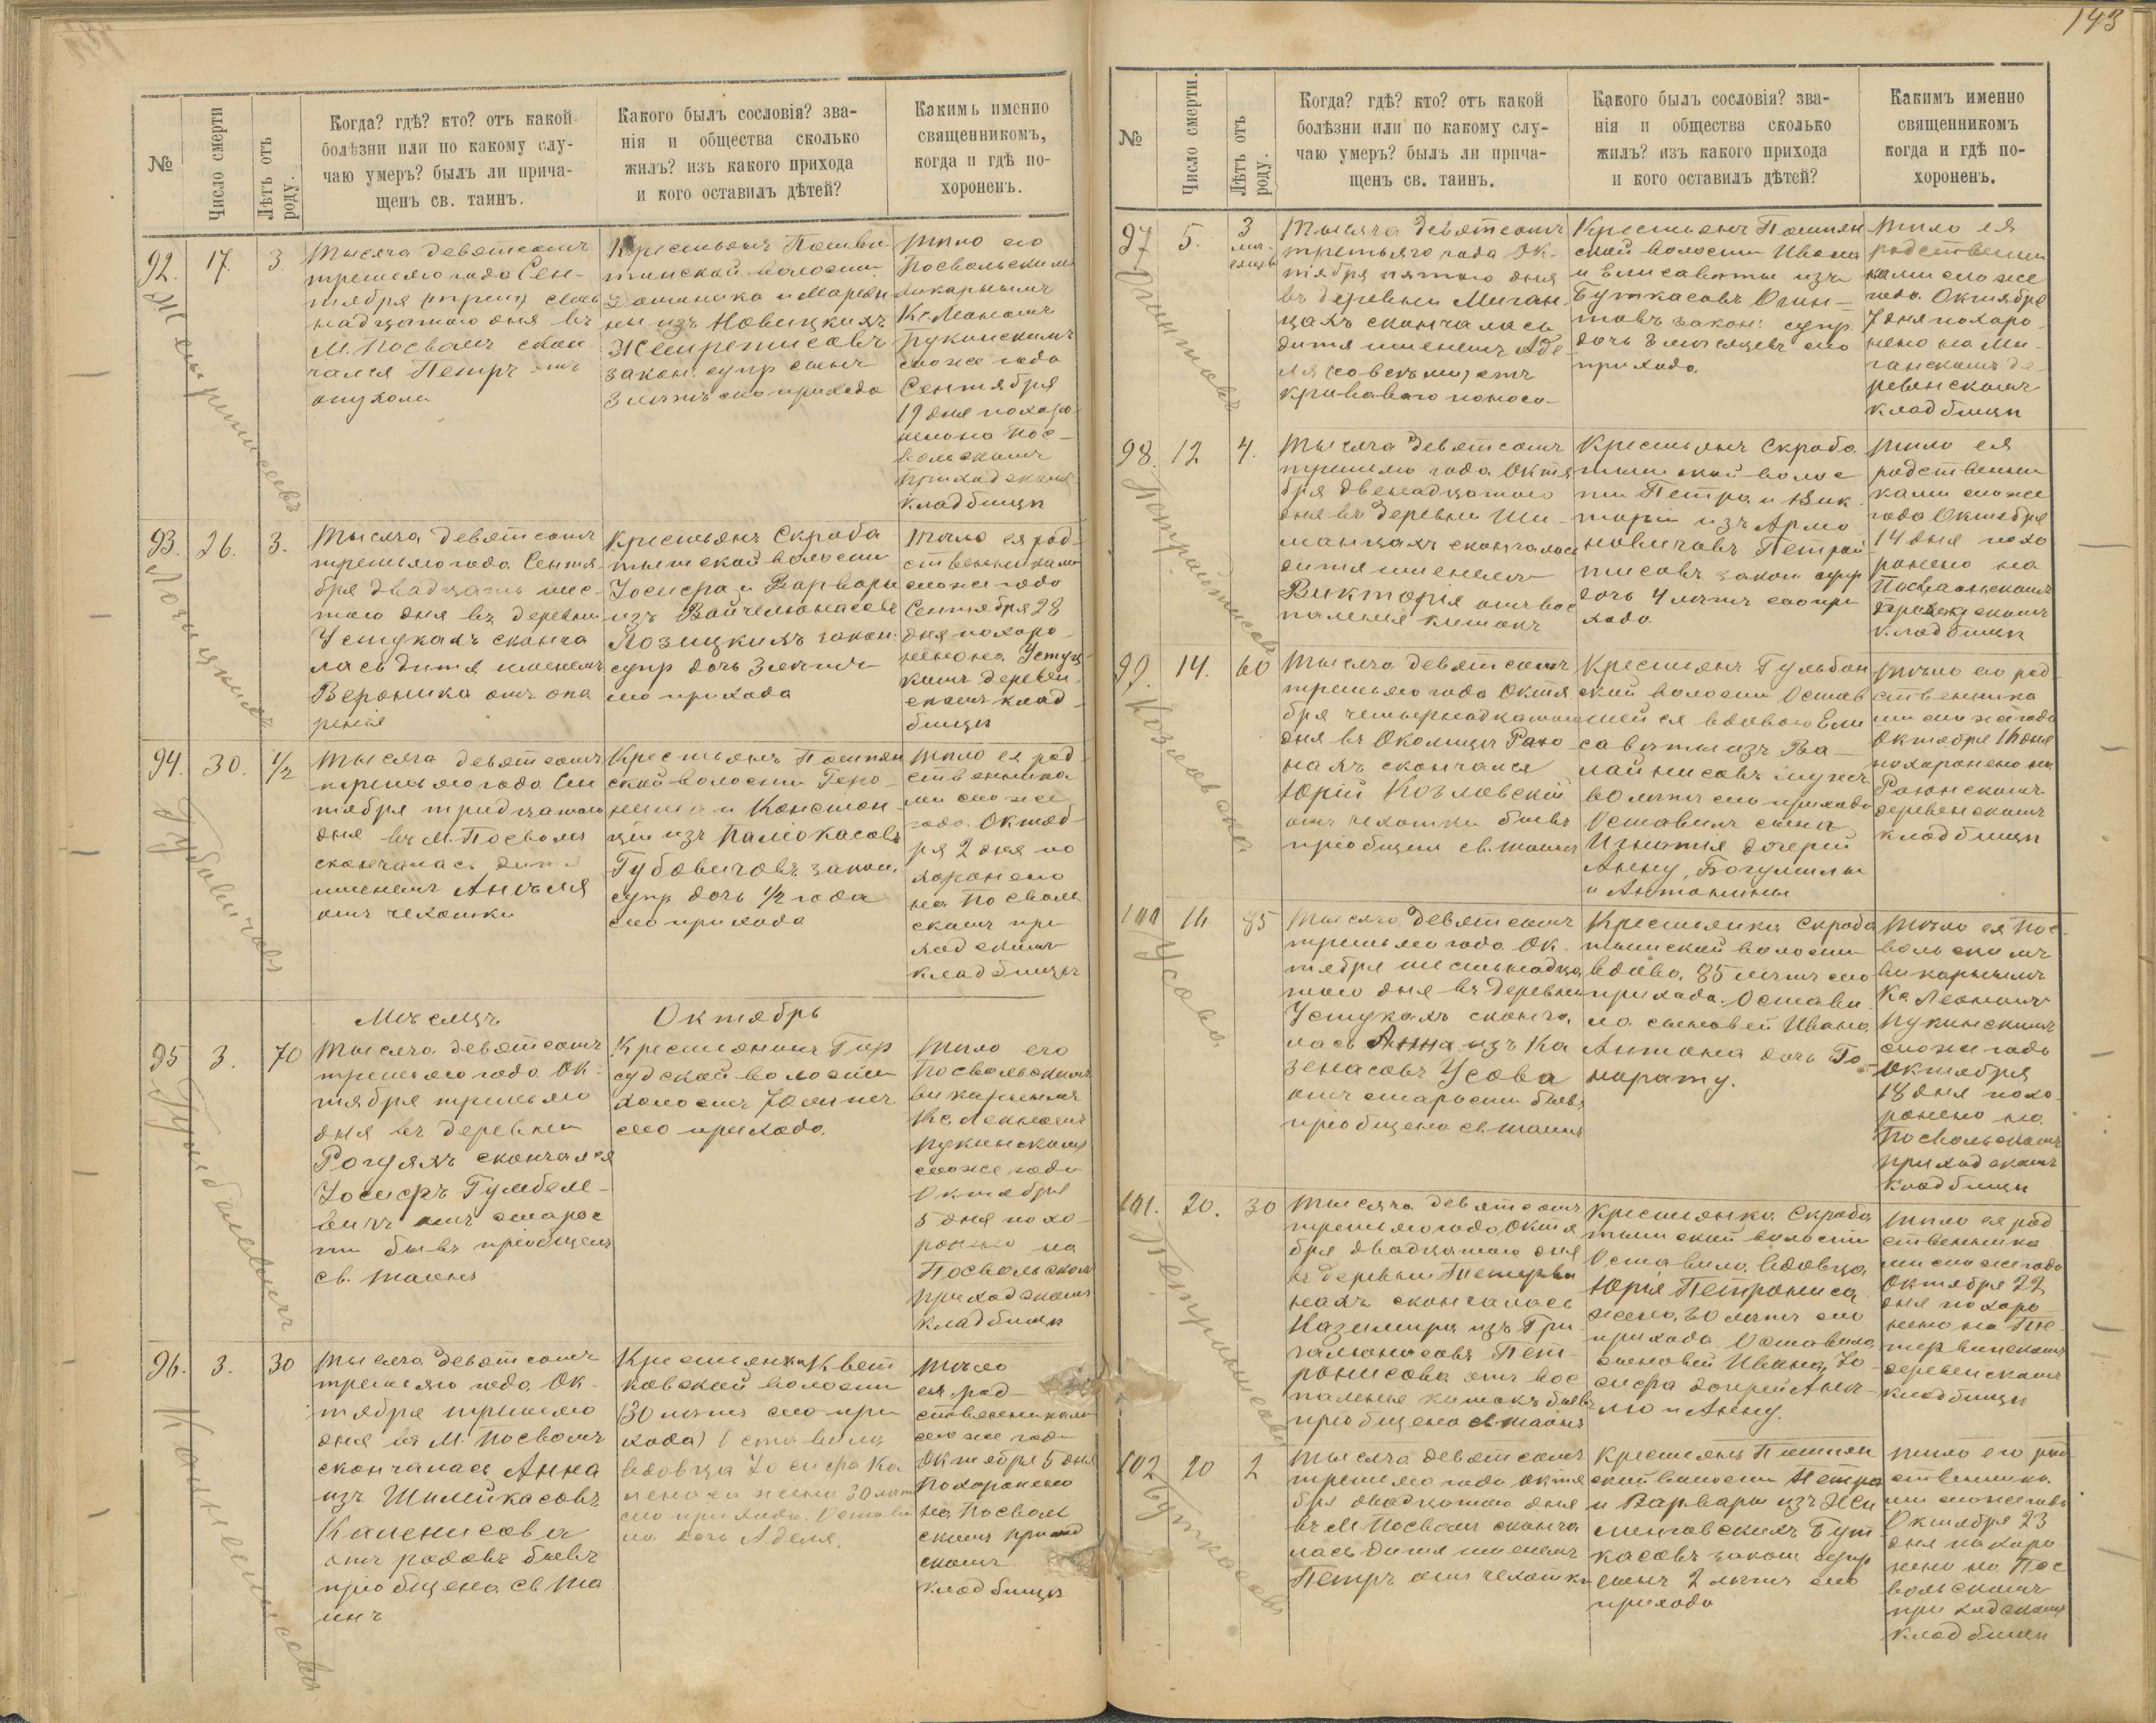 143
№
Число смерти
Лѣтъ отъ роду.
Когда? гдѣ? кто? отъ какой
болѣзни или по какому слу-
чаю умеръ? былъ ли прича-
щенъ св. таинъ.
Какого былъ сословія? зва-
нія и общества сколько
жилъ? изъ какого прихода
и кого оставилъ дѣтей?
Какимъ именно
священникомъ,
когда и гдѣ по-
хороненъ.
92.
17.
3.
Тысяча девятсотъ
третьяго года Сен-
тября
надцатого дня въ
М. Посволѣ скон
чался Петръ отъ
опухоли
Крестьянъ
волости
Доминика и Маріян
ны изъ Новицкихъ
закон. супр сынъ
3 лѣтъ сего прихода
Тѣло его
Посвольскимъ
викарнымъ
Кс. Леономъ
Пукинскимъ
сего же года
Сентября
19 дня похоро
нено на Пос-
вольскомъ
приходскомъ
кладбищѣ
93.
26.
3.
Лозицкихъ
Тысяча девятсотъ
третьяго года Сентя
бря двадцать шес-
того дня въ деревни
Устукахъ сконча
лась дитя именемъ
Вероника отъ опа
ренія
Крестьянъ Скроба
тишской волости
Іосифа и Варвары
изъ Вайчелюнасовъ
Лозицкихъ закон.
супр дочь 3 лѣтъ
сего прихода
Тѣло ея род-
ственниками
сего же года
Сентября 28
дня похоро
нено на Устуц-
комъ деревен
скомъ клад-
бищѣ
94.
30.
1/2
Губовичовъ
Тысяча девятсотъ
третьяго года Сен
тября тридцатого
дня въ М. Посволѣ
скончалась дитя
именемъ Анѣля
отъ чехотки
Крестьянъ Помпян
ской волости Геро-
нима и Констан
ціи изъ Паліокасовъ
Губовичовъ закон.
супр дочь 1/2 года
сего прихода
Тѣло ея род
ственника
ми сего же
года Октяб-
ря 2 дня по
хоронено
на Посволь
скомъ при
ходскомъ
кладбищѣ
Мѣсяцъ
Октябрь
95
3.
70
Гумбелевичъ
Тысяча девятсотъ
третьяго года Ок-
тября третьяго
дня въ деревни
Рогуляхъ скончался
Іосифъ Гумбеле-
вичъ отъ старос
ти бывъ пріобщенъ
св. таинъ
Крестянинъ Гир
судской волости
холостъ 70 лѣтъ
сего прихода.
Тѣло его
Посвольскимъ
викарнымъ
Кс Леономъ
Пукинскимъ
сего же года
Октября
5 дня похо-
ронено на
Посвольскомъ
приходскомъ
кладбищѣ
96.
3.
30
Тысяча девятсотъ
третьяго года Ок-
тября третьяго
дня въ М. Посволѣ
скончалась Анна
изъ Шимейкасовъ
Каленисова
отъ родовъ бывъ
пріобщена св та
инъ
Крестянка Квет
ковской волости
(30 лѣтъ сего при
хода) Оставила
вдовца Іосифа Ка
лениса жена 30 лѣтъ
сего прихода. Остави
ла дочь Аделя.
Тѣло
ея род-
ственниками
сего же года
Октября 5 дня
похоронено
на Посволь
скомъ приход
скомъ
кладбищѣ
№
Число смерти.
Лѣтъ отъ роду.
Когда? гдѣ? кто? отъ какой
болѣзни или по какому слу-
чаю умеръ? былъ ли прича-
щенъ св. таинъ.
Какого былъ сословія? зва-
нія и общества сколько
жилъ? изъ какого прихода
и кого оставилъ дѣтей?
Какимъ именно
священникомъ
когда и гдѣ по-
хороненъ.
97.
5.
3
мѣ-
сяцев
Огинтовъ
Тысяча девятсотъ
третьяго года Ок-
тября пятого дня
въ деревни Миган-
цахъ скончалась
дитя именемъ Аде
ля отъ
кроваваго поноса
Крестьянъ Помпян
ской волости Ивана
и Елисаветы изъ
Буткасовъ Огин-
товъ закон: супр.
дочь 3 мѣсяцевъ сего
прихода.
Тѣло ея
родственни
ками сего же
года Октября
7 дня похоро-
нено на Ми-
ганскомъ де-
ревенскомъ
кладбищѣ
98.
12
4.
Тысяча девятсотъ
третьяго года Октя
бря двенадцатого
дня въ деревни Ши-
манцахъ скончалась
дитя именемъ
Викторія отъ вос
паленія кишокъ
Крестьянъ Скроба
тишской волос
ти Петра и Вик-
торіи изъ Армо
новичовъ Петрай
тисовъ закон супр
дочь 4 лѣтъ сего при
хода
Тѣло ея
родственни
ками сего же
года Октября
14 дня похо
ронено на
Посвольскомъ
приходскомъ
кладбищѣ
99.
14.
60
Козловскій
Тысяча девятсотъ
третьяго года Октя
бря четырнадцатого
дня въ Околицѣ Раю
нахъ скончался
Юрій Козловскій
отъ чехотки бывъ
пріобщенъ св. таинъ
Крестьянъ Гульбин
ской волости Остав
шейся вдовою Ели
саветы изъ Ва-
лайнисовъ мужъ
60 лѣтъ сего прихода
Оставилъ сына
Игнатія дочерей
Анну, Богумилы
и Антонины
Тѣло его род
ственника
ми сего же года
Октября 16 дня
похоронено на
Раюнскомъ
деревенскомъ
кладбищѣ
100
16.
85
Усова.
Тысяча девятсотъ
третьяго года Ок-
тября шестнадца
того дня въ деревни
Устукахъ сконча
лась Анна изъ Ка
зенасовъ Усова
отъ старости бывъ
пріобщена св таинъ
Крестьянка Скроба
тишской волости
вдова, 85 лѣтъ сего
прихода. Остави
ла сыновей Ивана
Антона дочь Го-
норату.
Тѣло ея Пос-
вольскимъ
викарнымъ
Кс. Леономъ
Пукинскимъ
сего же года
Октября
18 дня похо-
ронено на
Посвольскомъ
приходскомъ
кладбищѣ
101.
20.
30
Тысяча девятсотъ
третьяго года Октя
бря двадцатого дня
въ деревни Петерви
нахъ скончалась
Казимира изъ Гри
галюнисовъ Пет-
ронисова отъ вос
паленія кишокъ бывъ
пріобщена св таинъ
Крестьянка Скроба
тишской волости
Оставила вдовца
Юрія Петрониса
жена 30 лѣтъ сего
прихода Оставила
сыновей Ивана, Іо
сифа дочерей Анѣ-
лю и Анну.
Тѣло ея род
ственника
ми сего же года
Октября 22
дня похоро-
нено на Пе-
тервинскомъ
деревенскомъ
кладбищѣ
102
20
2
Буткасовъ
Тысяча девятсотъ
третьяго года Октя
бря двадцатого дня
въ М Посволѣ сконча
лась дитя именемъ
Петръ отъ чехотки
Крестьянъ Помпян
ской волости Петра
и Варвары изъ
Бут
касовъ закон супр
сынъ 2 лѣтъ сего
прихода
Тѣло его род
ственника
ми сего же года
Октября 23
дня похоро
нено на Пос
вольскомъ
приходскомъ
кладбищѣ